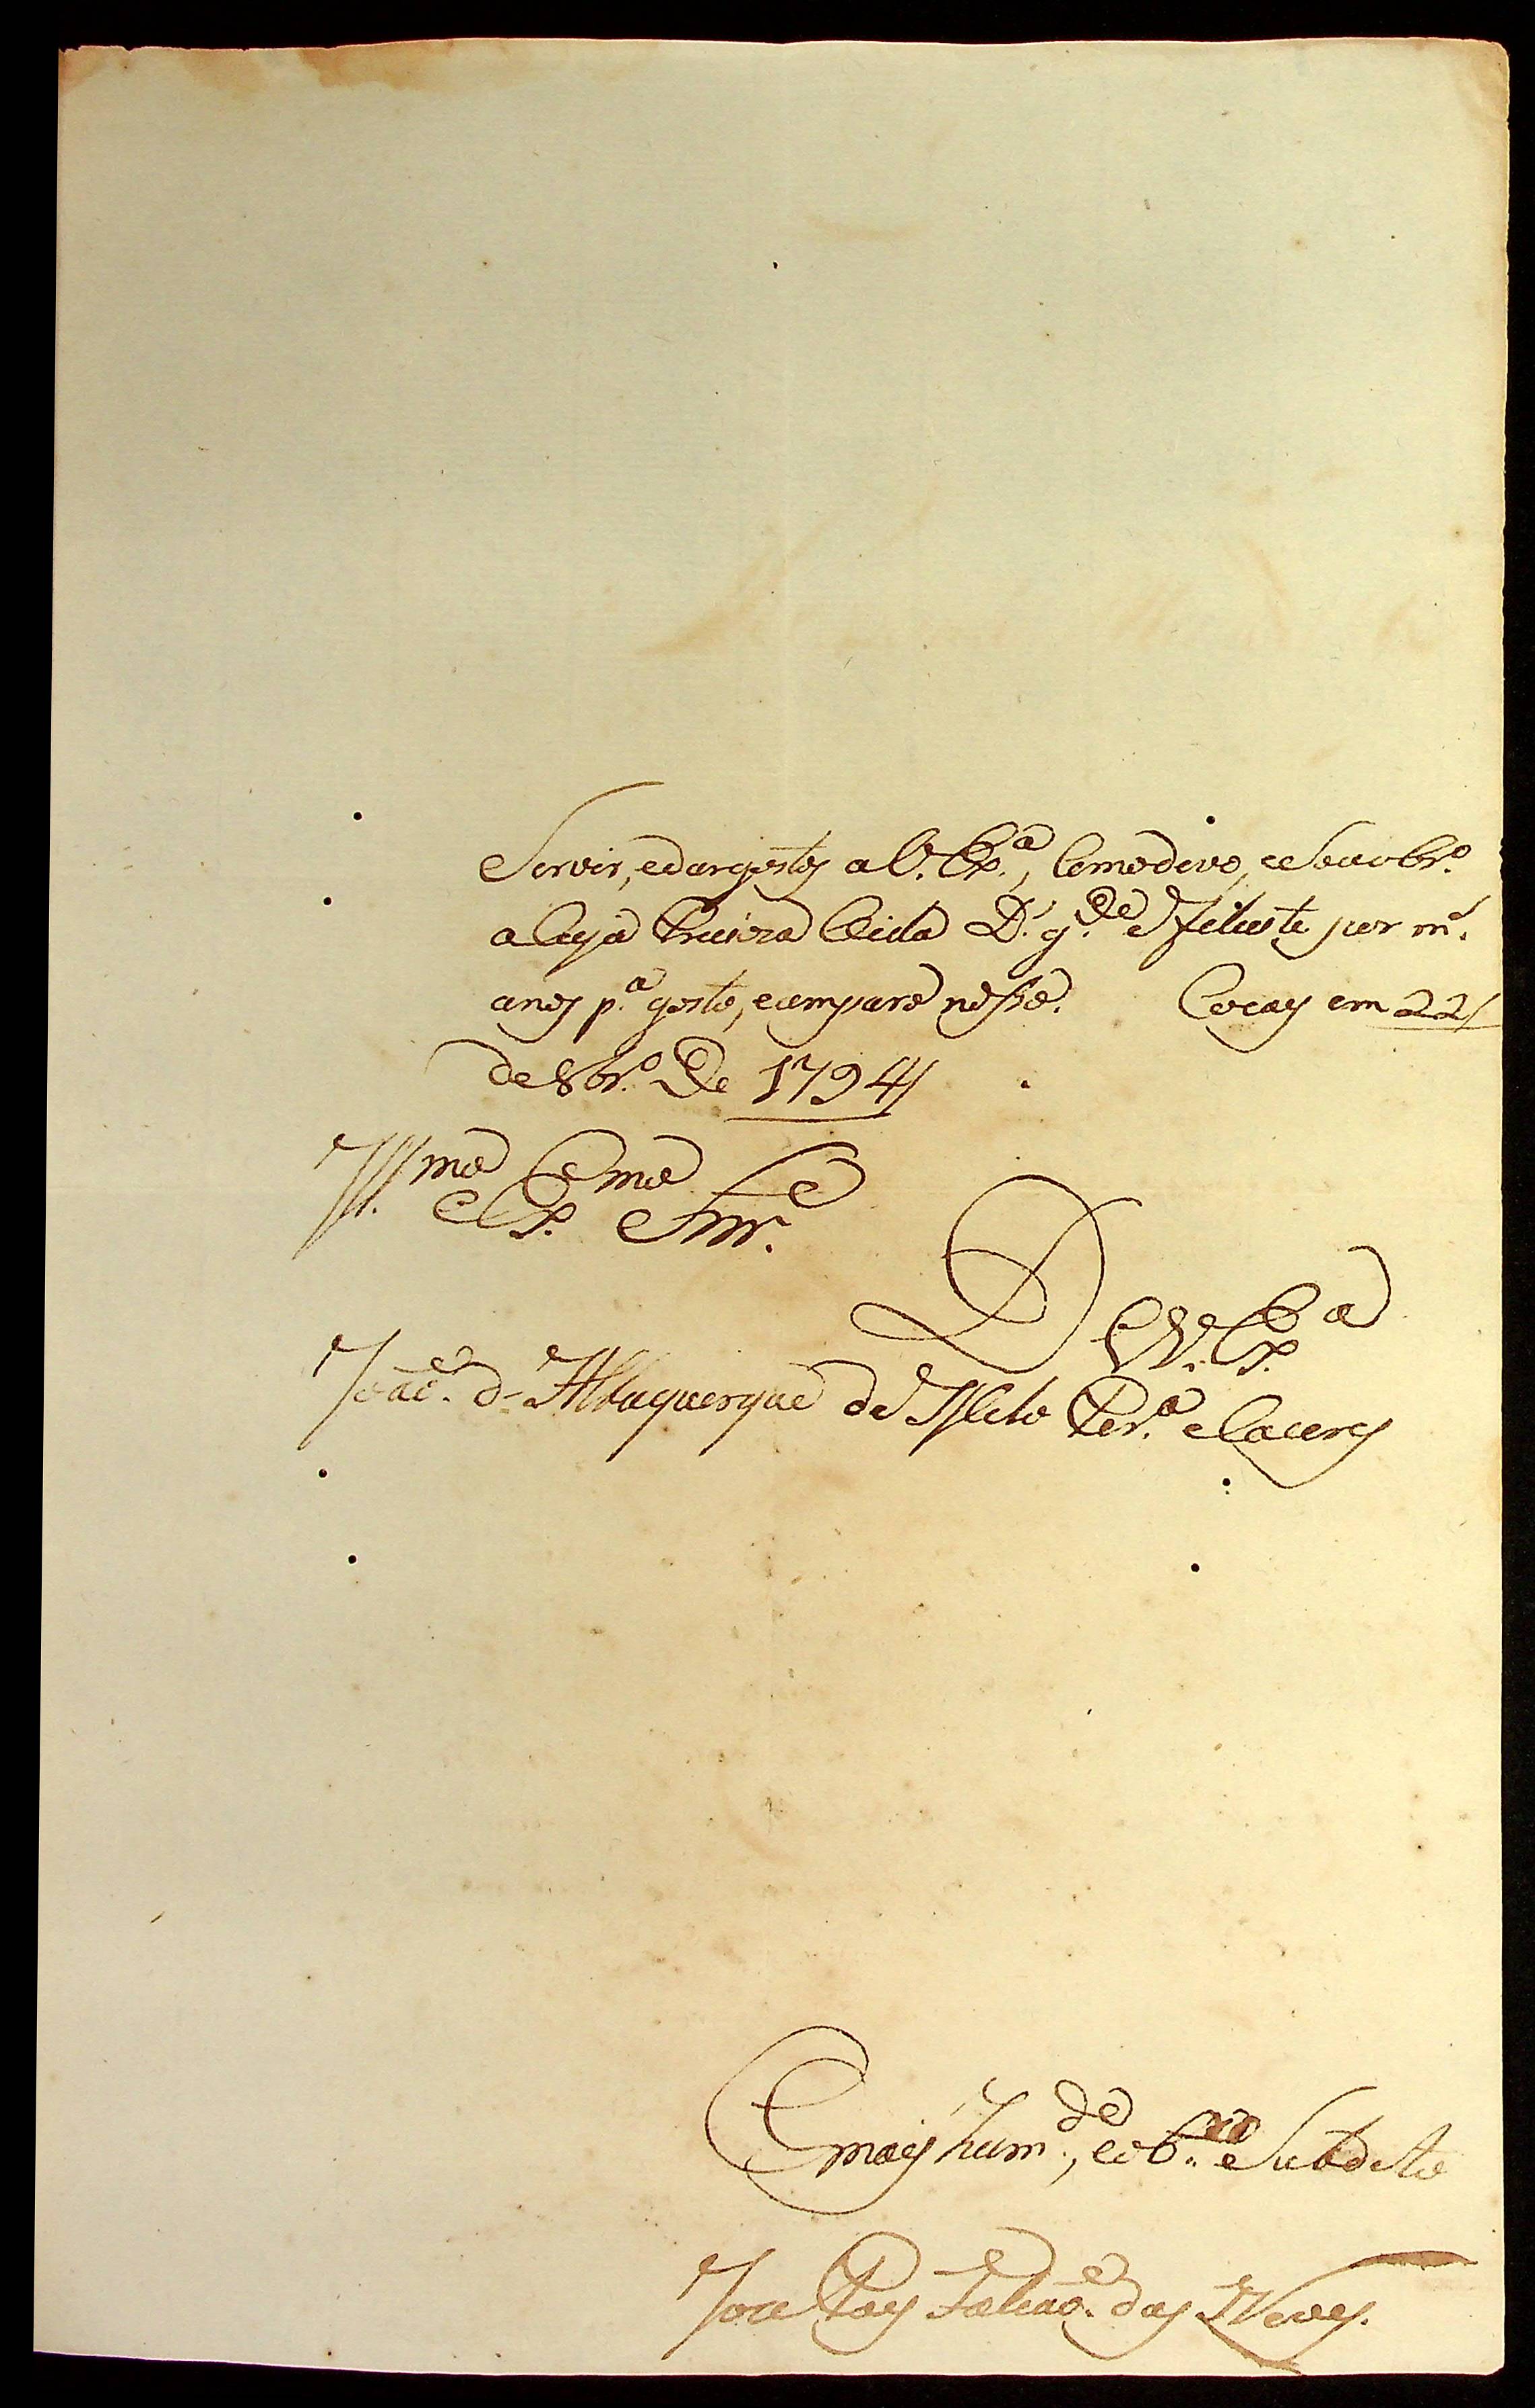 Servir, edargostos a V. Ex.ª, Comodevo, eSouobr.º
aCuja Precioza Vida D.s g.de eFelicite por m.s
anos p.ª gosto, eamparo nosso. Cocaes em 22/
de 8br.º De 1794//
Ill.mo e Ex.mo Snr.
De V. Ex.ª
Joaõ. d'Albuquerque de Mello Per.ª eCaceres
O mais hum.de, eob.mo Subdeto
Joze Paes Falcaõ. das Neves.